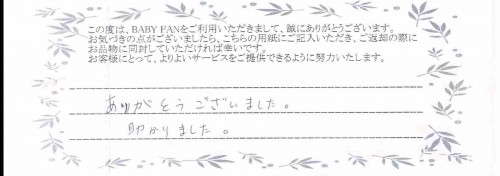 この度は、BABY FANをご利用いただきまして、誠にありがとうございます。
お気づきの点がございましたら、こちらの用紙にご記入いただき、ご返却の際に
お品物に同封していただければ幸いです。
お客様にとって、よりよいサービスをご提供できるように努力いたします。
ありがとうございました。
助かりました。